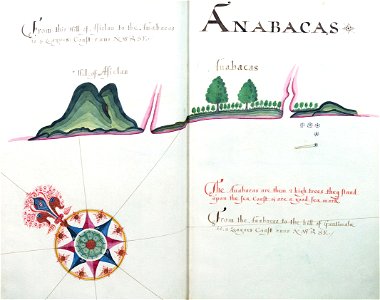 From this hill of Asselan to the Anabacas
is 2 Leagues Coast runs N.W & S.E.
Hill of Asselan
ANABACAS
Anabacas
The Anabacas are then 7 high trees they stand
upon the sea Coast & are a good sea mark.
From the Anabacas to the hill of Guatimala
is 2 Leagues Coast runs N.W & S.E.